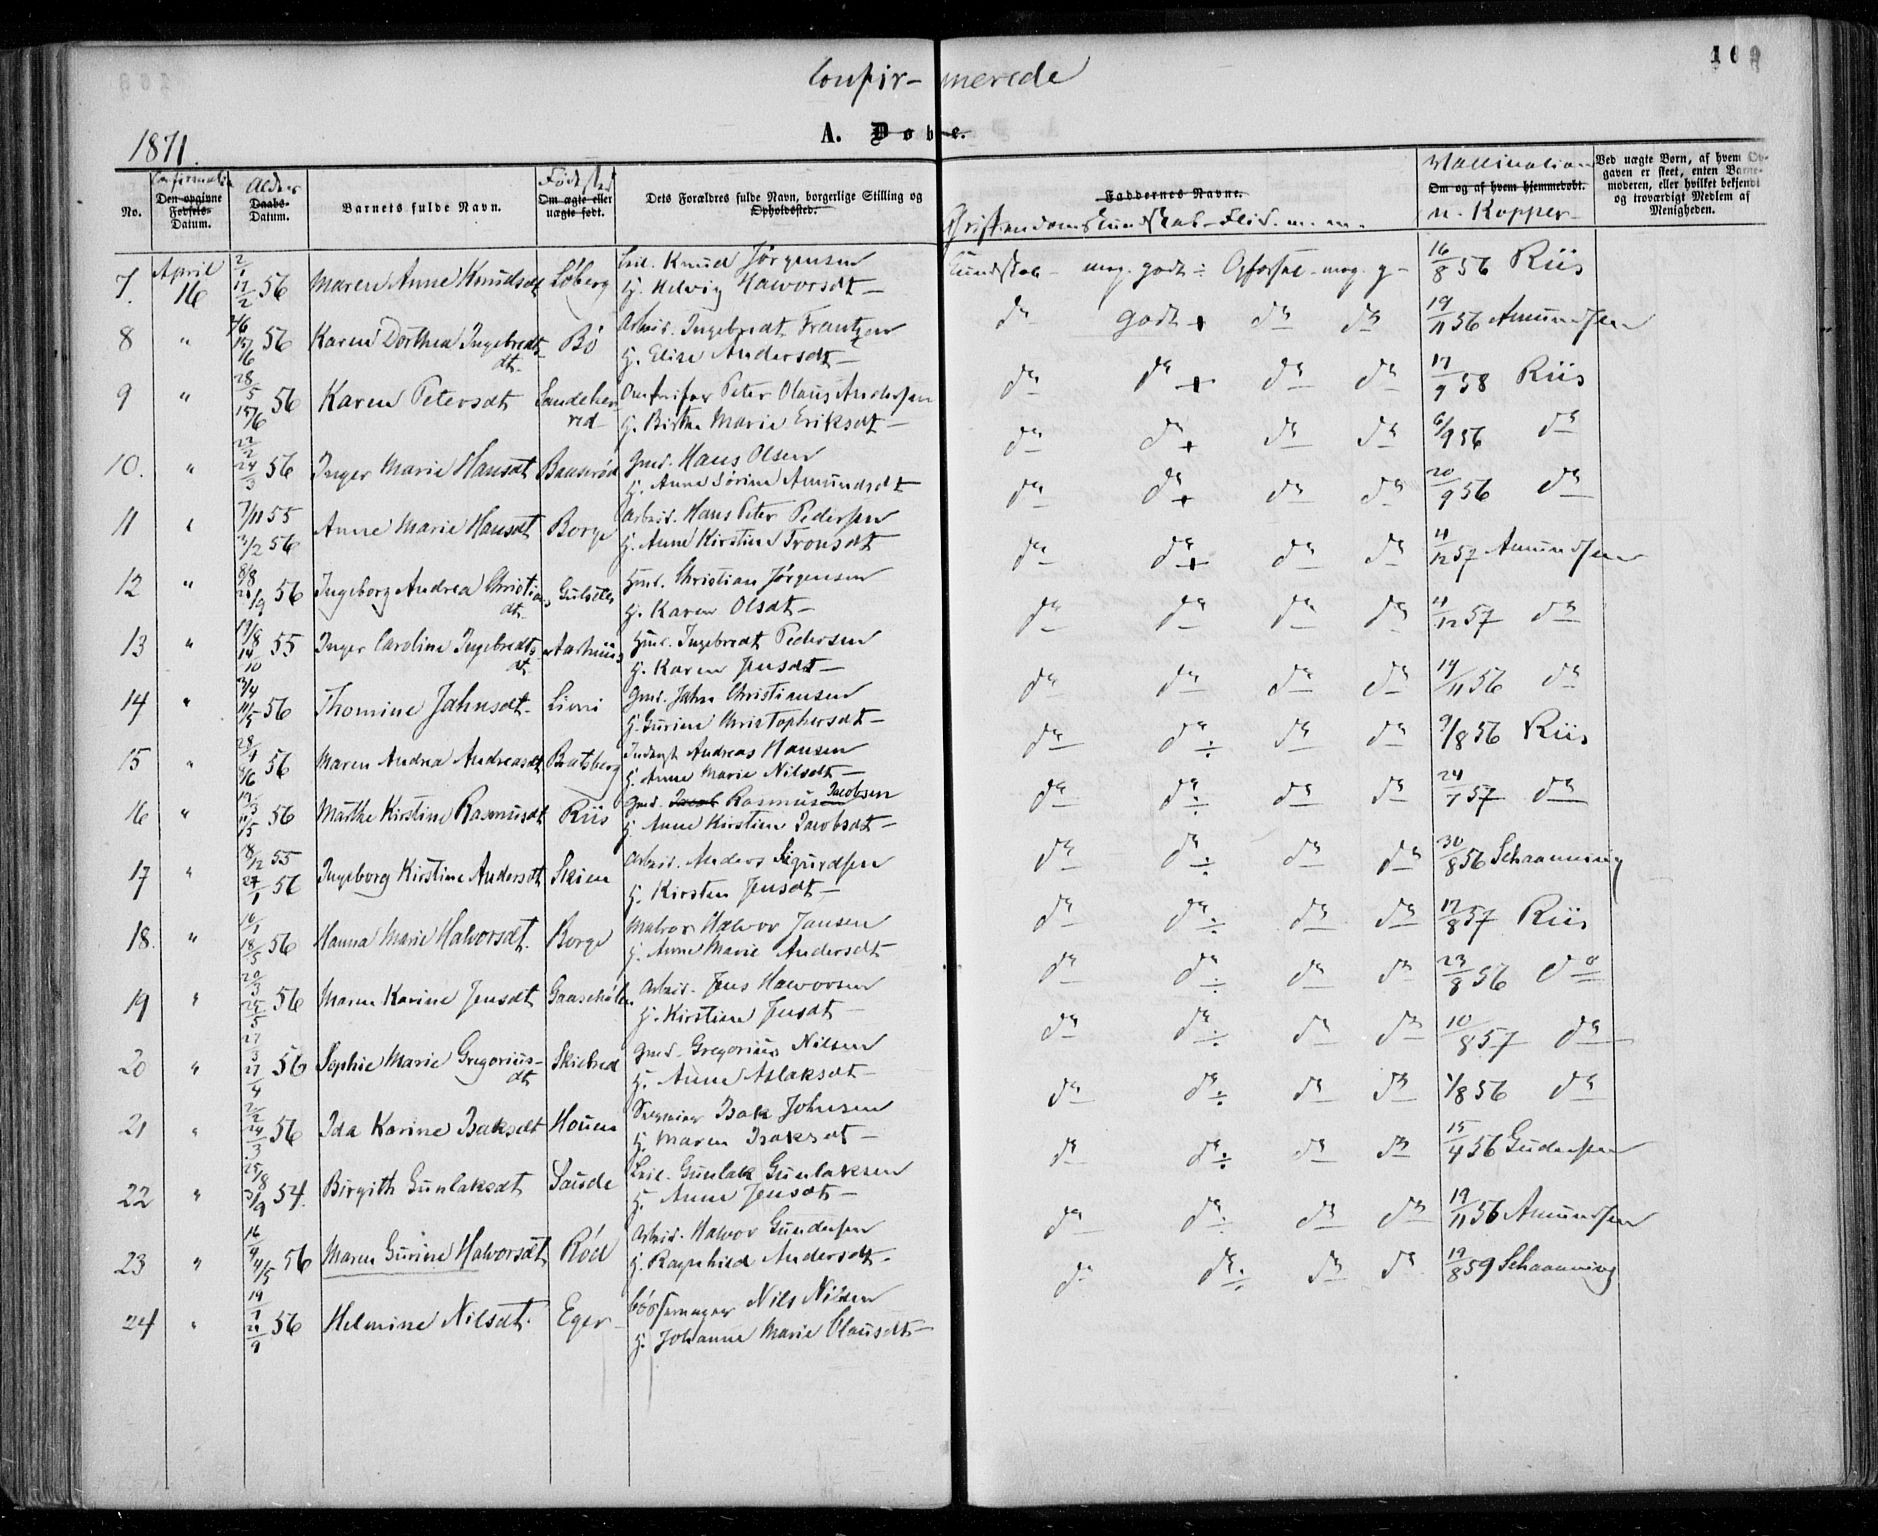 109
Confir- merede
A. Døbe.
1871.
No.
Confirmatio
Den opgivne Fødsels-Datum.
Alder
Daabs-Datum.
Barnets fulde Navn.
Fødested
Om ægte eller uægte født.
Dets Forældres fulde Navn, borgerlige Stilling og Opholdssted.
Faddernes Navne.
Christendomskundskab - Flid. m. m.
Vaccination
Om og af hvem hjemmedøbt.
n. Kopper
Ved uægte Børn, af hvem Opgaven er skeet, enten Barnemoderen, eller hvilket bekjendt og troværdigt Medlem af Menigheden.
7. April 16 2/1 17/2 56 Maren Anne Knudsdt Løberg Leil. Knud Jørgensen
H. Helvig Halvorsdt
Kundskab - meg. godt ÷ Opførsel - meg. g - 16/8 56 Riis
8 " 15/6 56 Karen Dorthea Ingebredtdt. Bø Arbeid. Ingebredt Frantzen
H. Elise Andersdt
do godt + do do 19/11 56 Amundsen
9 " 28/5 15/6 56 Karen Petersdt Sandeherred Peter Olaus Andersen
H. Birthe Marie Eriksdt
do do + do do 17/9 58 Riis
10. " 22/2 24/3 56 Inger Marie Hansdt Baaserød Gmd. Hans Olsen
H. Anne Sørine Amundsdt
do do + do do 6/9 56 do
11 " 7/11 55 3/2 56 Anne Marie Hansdt Borge Arbeid. Hans Peter Pedersen
H. Anne Kirstine Tronsdt
do do + do do 20/9 56 do
12 " 8/8 21/9 56 Ingeborg Andrea Christiansdt. Gulseth Huusl. Christian Jørgensen
H. Karen Olsdt
do do + do do 11/12 57 Amundsen
13 " 19/8 14/10 55 Inger Caroline Ingebredtsdt Aarhuus Huusl. Ingebredt Pedersen
H. Karen Jensdt
do do do do 11/12 57 do
14 " 3/4 11/5 56 Thomine Jahnsdt. Lien Gmd. Jahn Christiansen
H. Gurine Christophersdt
do do do do 14/11 56 do
15 " 28/4 56 Maren Andrea Andreasdt Bratsberg Inderst Andreas Hansen
H. Anne Marie Nilsdt
do do ÷ do do 9/8 56 Riis
16 " 56 Marthe Kirstine Rasmusdt Riis Gmd. Jacob Rasmus Jacobsen
H. Anne Kirstine Jacobsdt
do do ÷ do do 24/7 57 do
17 " 18/12 55 27/1 56 Ingeborg Kirstine Andersdt Skien Arbeid. Anders Sigurdsen
H. Kirsten Jensdt
do do ÷ do do 30/8 56 Schaanning
18. " 16/1 18/5 56 Hanna Marie Halvorsdt. Borge Matros Halvor Jansen
H. Anne Marie Andersdt
do do ÷ do do 17/8 57 Riis
19 " 20/3 25/5 56 Maren Karine Jensdt Gaaseholen Arbeid. Jens Halvorsen
H. Kirstine Jensdt
do do ÷ do do 23/8 56 do
20 " 27/3 27/4 56 Sophie Marie Gregoriusdt Skiebred Gmd. Gregorius Nilsen
H. Anne Aslaksdt
do do ÷ do do 10/8 57 do
21 " 2/2 24/3 56 Ida Karine Isaksdt Houen Isak Johnsen
H. Maren Isaksdt
do do ÷ do do 1/8 56 do
22 " 25/8 3/9 54. Birgith Gunlaksdt Saude Leil. Gunlak Gunlaksen
H. Anne Jensdt
do do ÷ do do 15/4 56 Gundersen
23 " 16/4 4/5 56 Maren Gurine Halvorsdt Rød Arbeid. Halvor Gundersen
H. Ragnhild Andersdt
do do ÷ do do 19/11 56 Amundsen
24 " 56 Helmine Nilsdt. Eger Børsemager Nils Nilsen
H. Johanne Marie Clausdt
do do ÷ do do 19/8 59 Schaanning